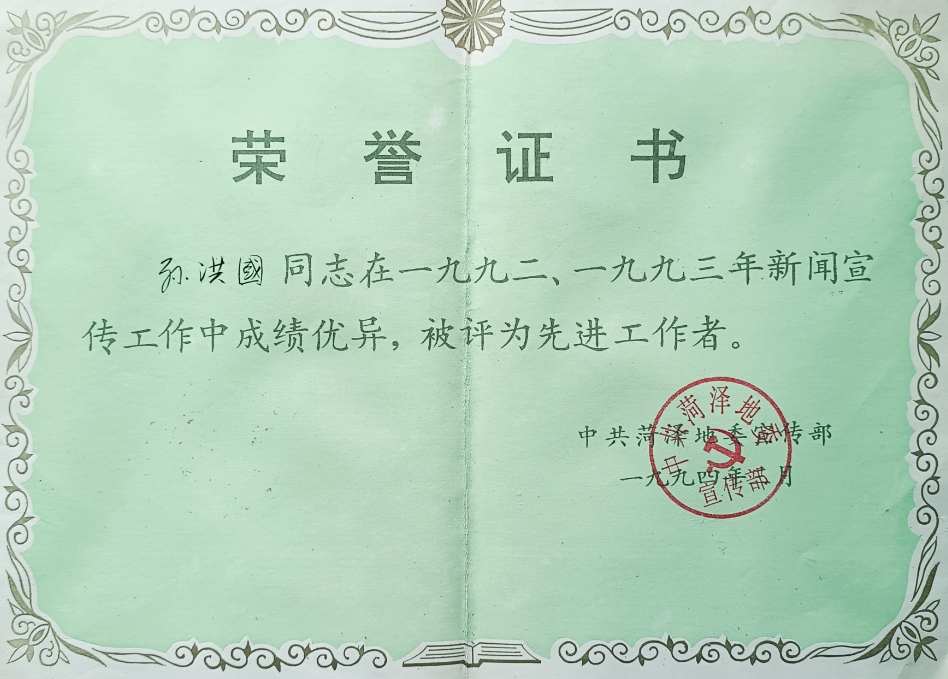 荣誉证书
孙洪國同志在一九九二、一九九三年新闻宣
传工作中成绩优异，被评为先进工作者。
中共菏泽地委宣传部
一九九四年 月
中共菏泽地委
宣传部